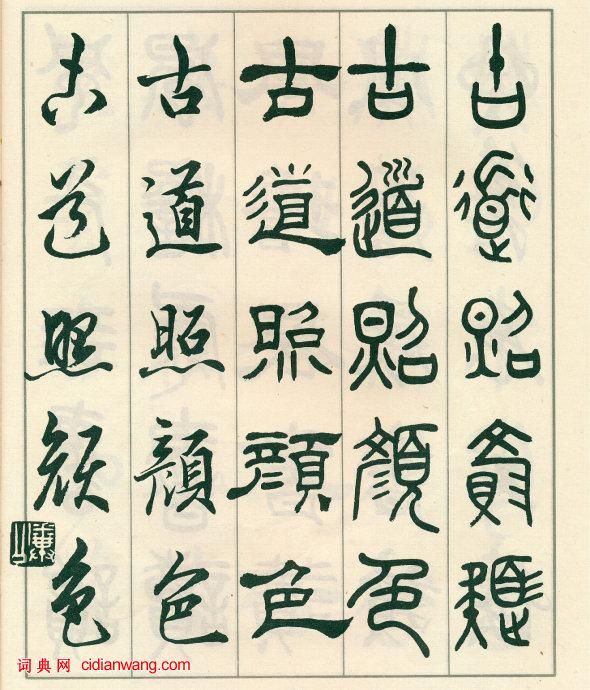 古道照顏色
古道照顏色
古道照顏色
古道照顏色
古道照顏色
词典网 cidianwang.com